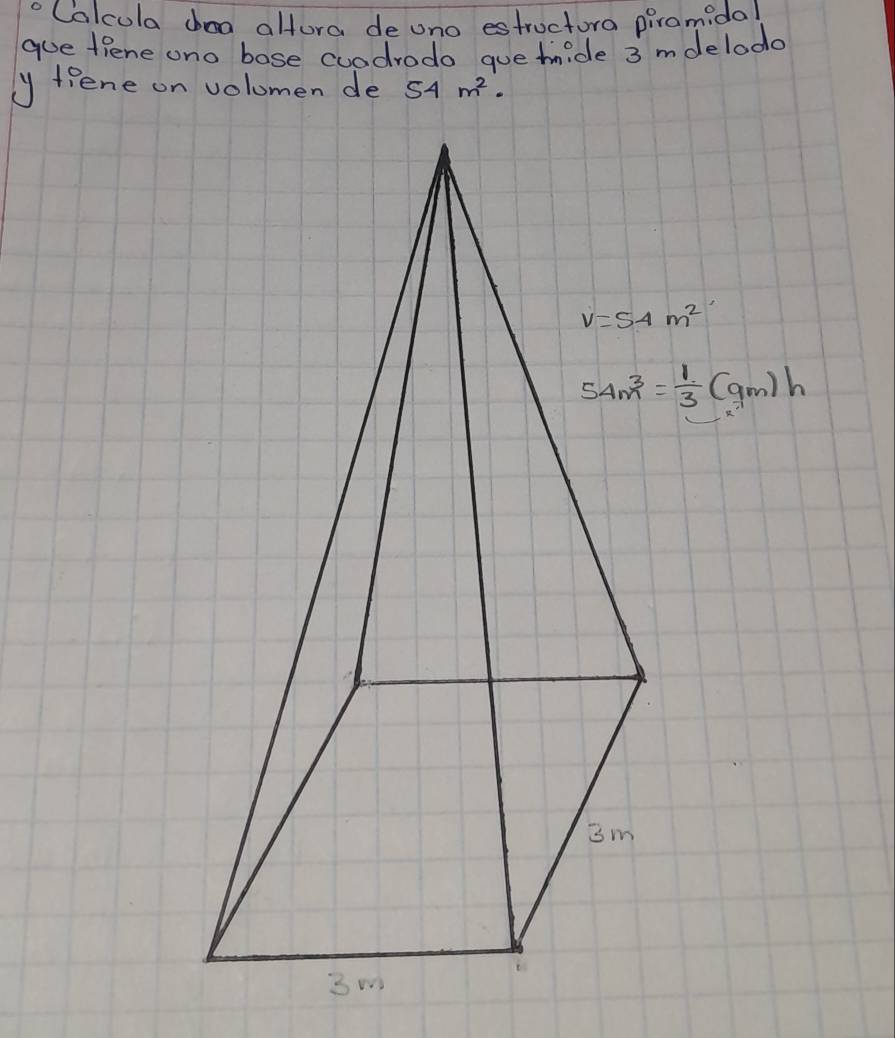 Calcula la altura de una estructura piramidal
que tiene una base cuadrado que mide 3 m de lado
y tiene un volumen de 54 m².
V=54 m²
54m³ = 1/3 (9m) h
3m
3m